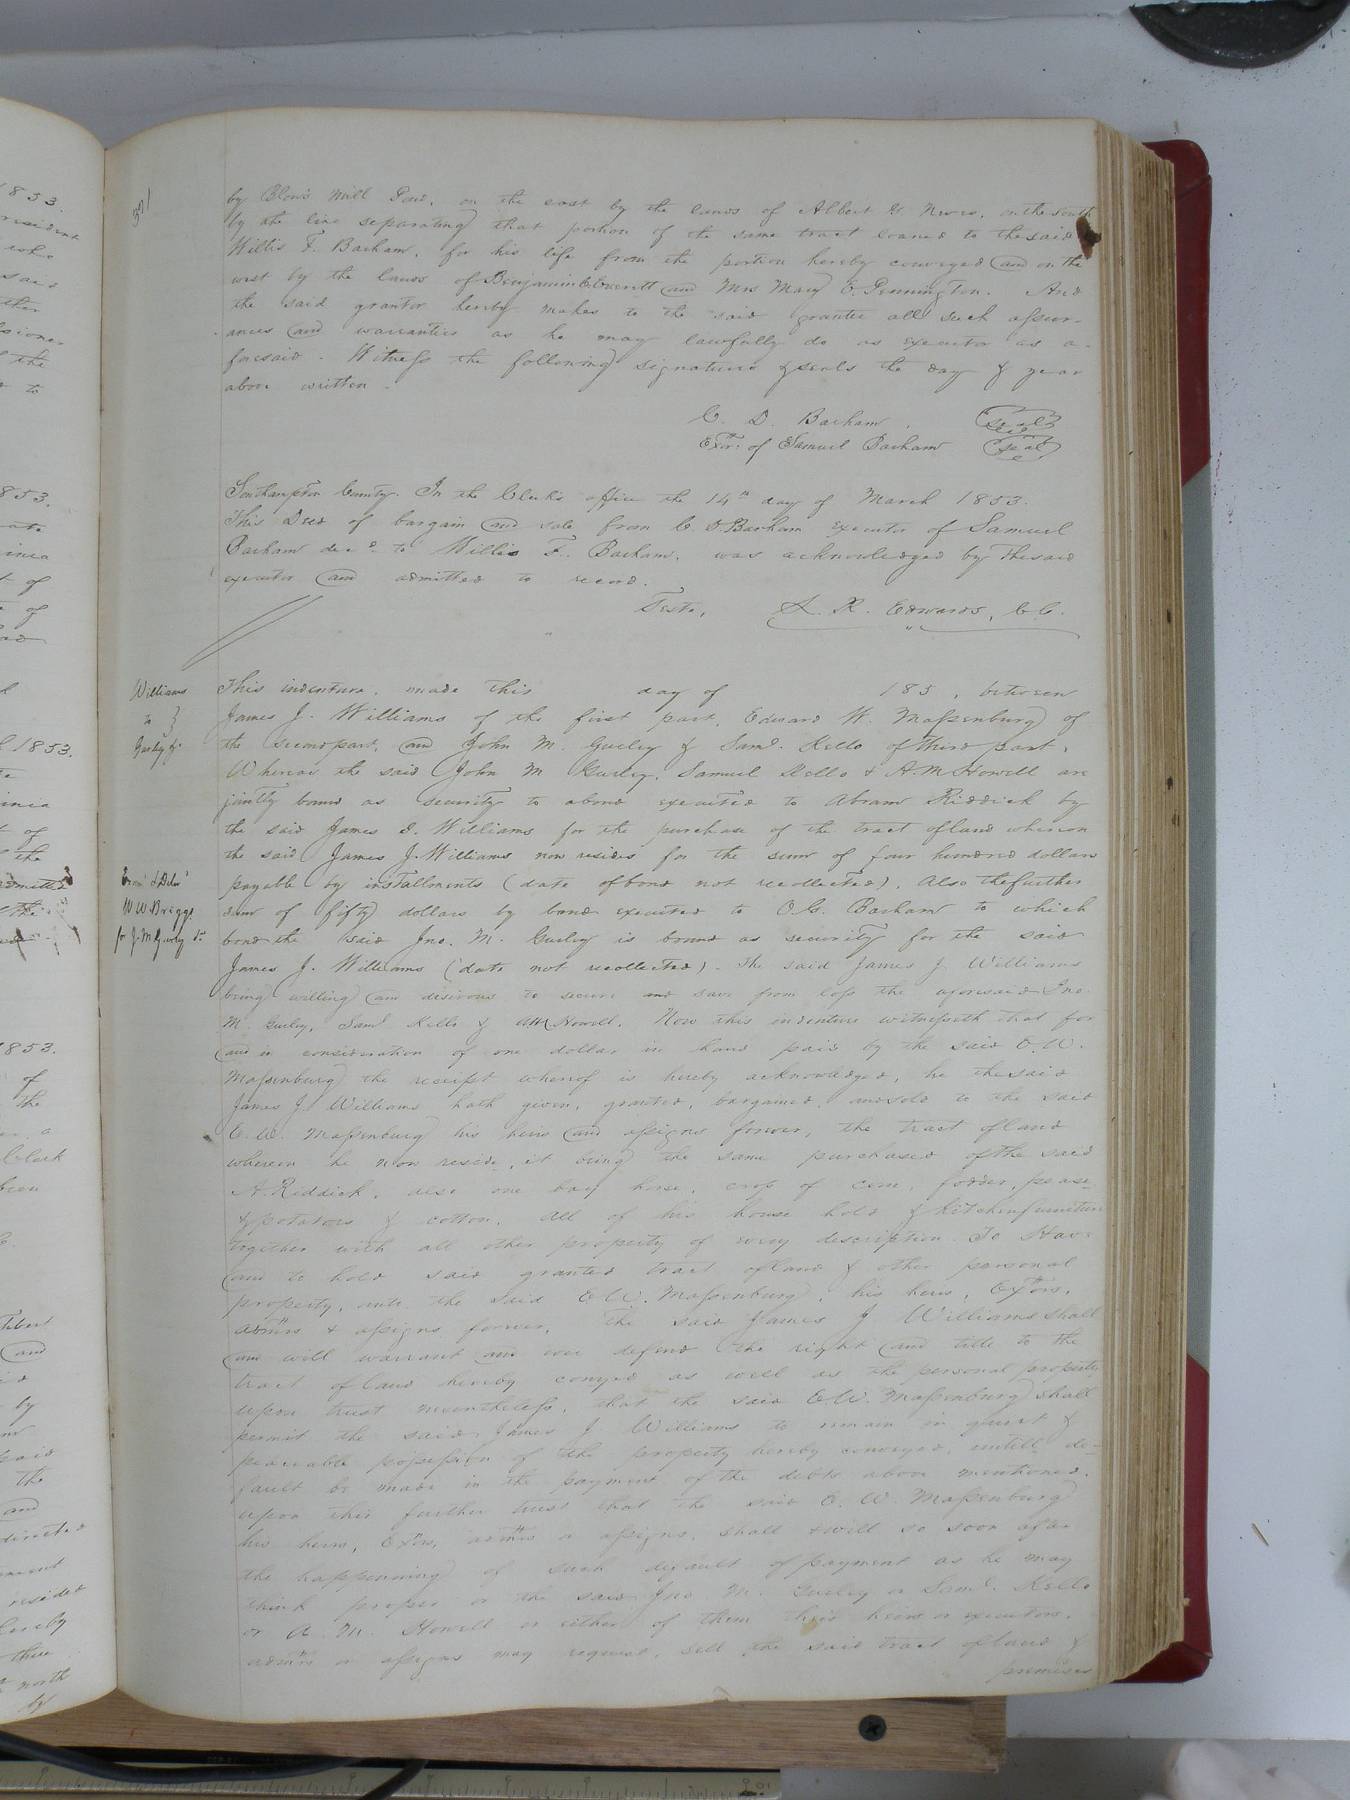 371
by Blow's Mill Pond, on the east by the lands of Albert G. News, on the south
by the line separating that portion of the same tract loaned to the said
Willis F. Barham, for his life from the portion hereby conveyed and on the
west by the lands of Benjamin C. Everett and Mrs Mary E. Pennington. And
the said grantor hereby makes to the said grantee all such assur-
ances and warranties as he may lawfully do as executor as a-
foresaid. Witness the following signature & seals the day & year
above written.
C. D. Barham, Seal
Exor. of Samuel Barham Seal
Southampton County. In the Clerk's office the 14th day of March 1853.
This Deed of bargain and sale from C. D. Barham executor of Samuel
Barham decd. to Willis F. Barham, was acknowledged by the said
executor and admitted to record.
Teste, L. R. Edwards, C.C.
Williams
to
Gurley &c
This indenture, made this day of 185 , between
James J. Williams of the first part, Edward W. Massenburg of
the second part, and John M. Gurley & Saml. Kello of third part,
Whereas the said John M Gurley, Samuel Kello & A. M. Howell are
jointly bound as security to a bond executed to Abram Riddick by
the said James J. Williams for the purchase of the tract of land whereon
the said James J. Williams now resides for the sum of four hundred dollars
Exd. & Deld.
W W Briggs
for J. M. Gurley Tr
payable by installments (date of bond not recollected). Also the further
sum of fifty dollars by bond executed to O. G. Barham to which
bond the said Jno. M. Gurley is bound as security for the said
James J. Williams (date not recollected). The said James J Williams
being willing and desirous to secure and save from loss the aforesaid Jno.
M. Gurley, Saml Kello & A M Howell. Now this indenture witnesseth that for
and in consideration of one dollar in hand paid by the said E. W.
Massenburg the receipt whereof is hereby acknowledged, he the said
James J. Williams hath given, granted, bargained, and sold to the said
E. W. Massenburg his heirs and assigns forever, the tract of land
wherein he now reside, it being the same purchased of the said
A. Riddick, also one bay horse, crop of corn, fodder, pease
& potatoes & cotton, all of his house hold & kitchen furniture
together with all other property of every description. To Have
and to hold said granted tract of land & other personal
property, unto the said E W. Massenburg, his heirs, Extors,
admrs & assigns forever. The said James J Williams shall
and will warrant and ever defend the right and title to the
tract of land hereby conyed as well as the personal property
upon trust nevertheless, that the said E W. Massenburg shall
permit the said James J Williams to remain in quiet &
peaceable possession of the property hereby conveyed, untill de-
fault be made in the payment of the debts above mentioned.
upon this further trust that the said E. W. Massenburg
his heirs, Exrs, admrs or assigns, shall & will so soon after
the happenning of such default of payment as he may
think proper or the said Jno M. Gurley or Saml. Kello
or A. M. Howell or either of them their heirs or executors,
admrs or assigns may request, sell the said tract of land &
premises